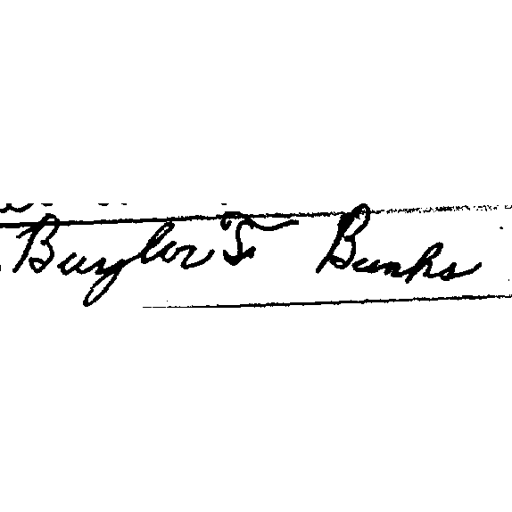 Baylor T. Banks